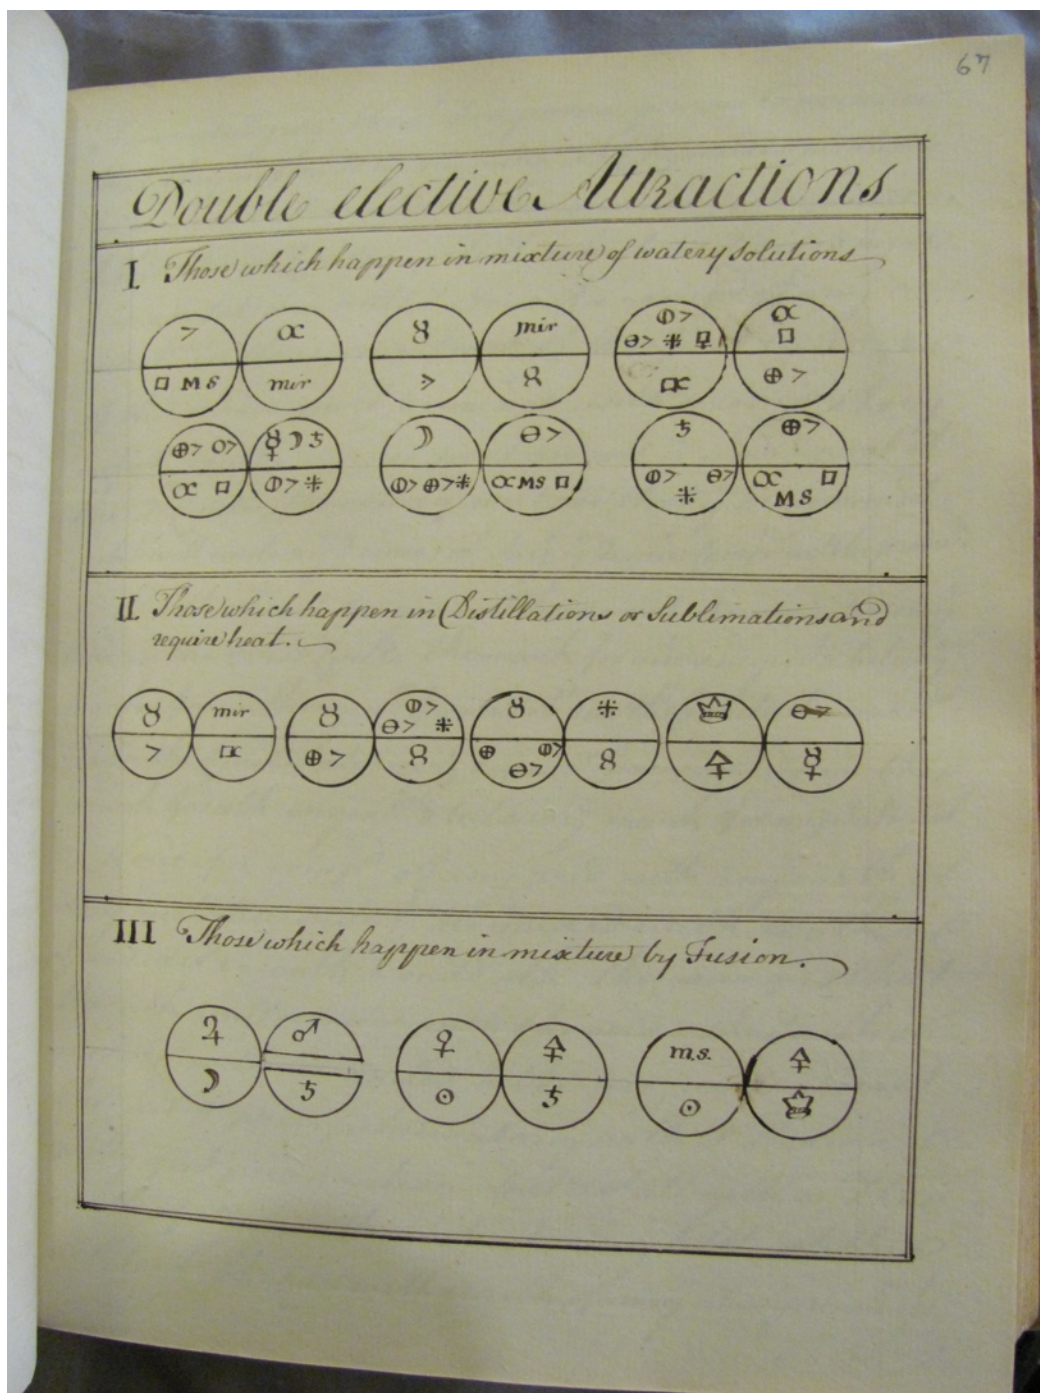 67
Double elective Attractions
I Those which happen in mixture of watery solutions
> ∝ 𐌏 mir >
□ MS mir > 8
∝ □
⊕> O> ☿ ☽ ♄ ☽ ⊖> ♄ ⊕>
∝ □ ⦶> ⁜ ⦶> ⊕> ⁜ ∝ MS □ ⦶> ⊖> ⁜ ∝ □ MS
II Those which happen in Distillations or Sublimations and
require heat.
♉ mir ♉ ⦶> ⊖> ⁜ ♉ ⁜ ⊖>
> ⊕> ⊕ ⦶> ⊖> ☿
III Those which happen in mixture by Fusion.
♃ ♂ ♀ 🜍 m.s. 🜍
☽ ♄ ☉ ♄ ☉